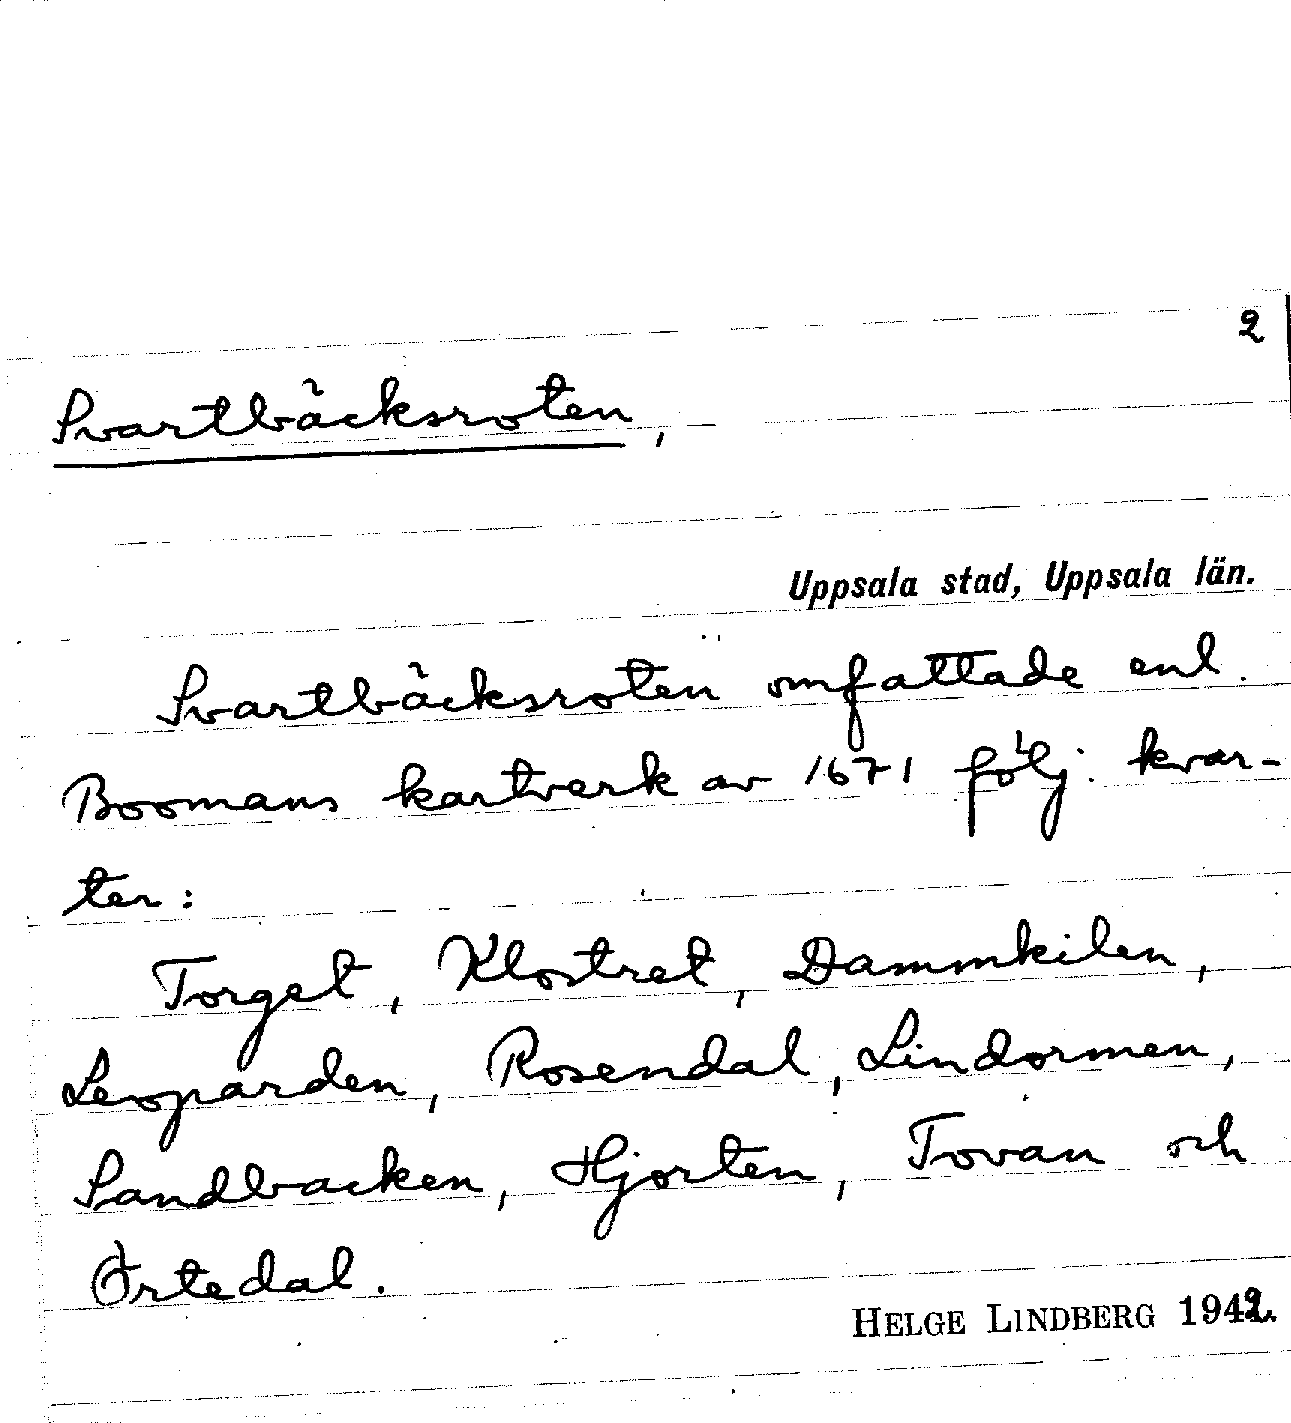 2
Svartbäcksroten,
Uppsala stad, Uppsala län.
Svartbäcksroten omfattade enl.
Boomans kartverk av 1671 följ. kvar-
ter:
Torget, Klostret, Dammkilen,
Leoparden, Rosendal, Lindormen,
Sandbacken, Hjorten, Tovan och
Örtedal.
HELGE LINDBERG 1942.